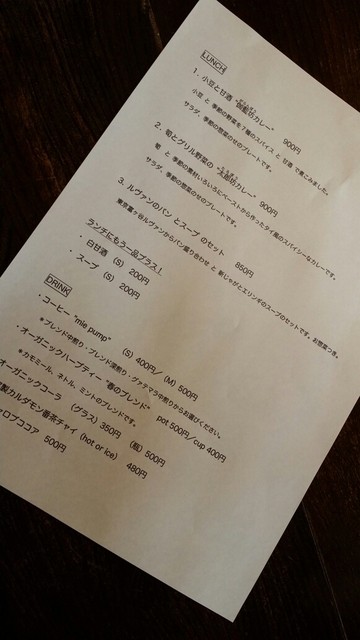 LUNCH
1. 小豆と甘酒 カレー" 900円
小豆 と 季節の野菜を7種のスパイス と 甘酒 で煮こみました。
サラダ、季節の惣菜のせのプレートです。
2. 筍とグリル野菜の "太郎坊カレー" 900円
筍 と 季節の素材いろいろにペーストから作ったタイ風のスパイシーなカレーです。
サラダ、季節の惣菜のせのプレートです。
3. ルヴァンのパン とスープ のセット 850円
東京富ヶ谷ルヴァンからパン盛り合わせ と 新じゃがとエリンギのスープのセットです。お惣菜つき。
ランチにもう一品プラス!
・白甘酒 (S) 200円
・スープ (S) 200円
DRINK
・コーヒー "mie pump" (S) 400円/ (M) 500円
*ブレンド中煎り・ブレンド深煎り・グァテマラ中煎りからお選びください。
・オーガニックハーブティー "春のブレンド" pot 500円/cup 400円
*カモミール、ネトル、ミントのブレンドです。
オーガニックコーラ (グラス) 350円 (瓶) 500円
製カルダモン番茶チャイ (hot or Ice) 480円
ャロブココア 500円